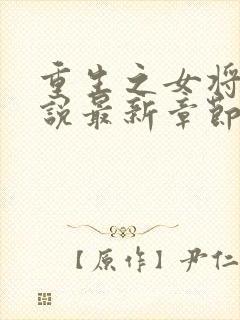 重生之女将
說最新章節
【原作】尹仁